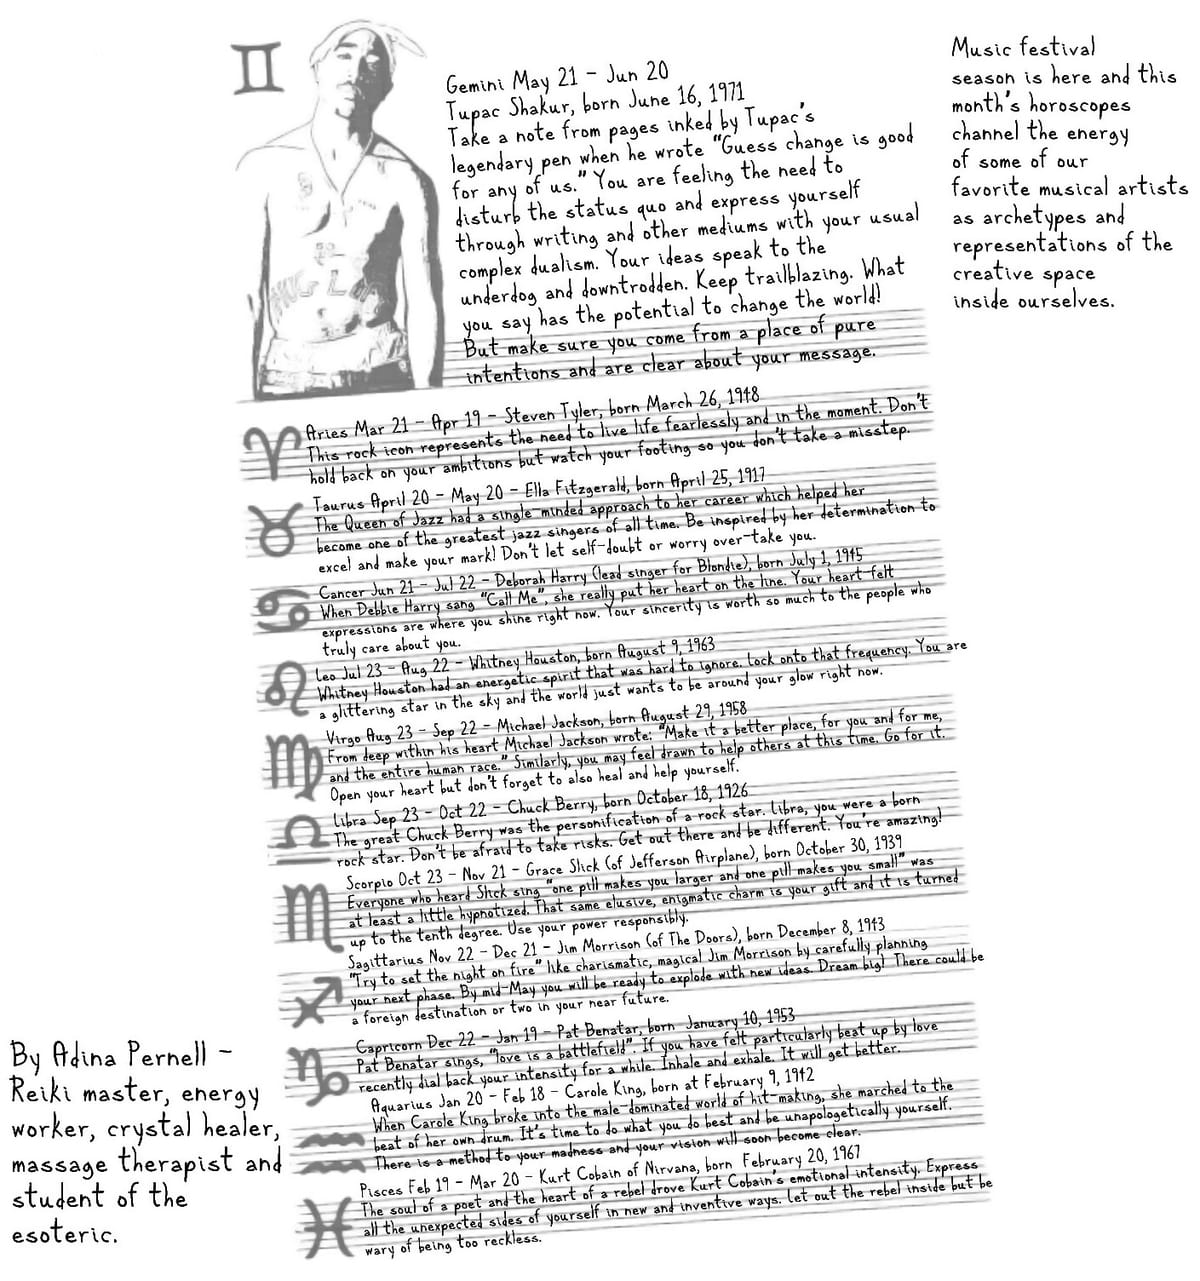 Gemini May 21 - Jun 20
Tupac Shakur, born June 16, 1971
Take a note from pages inked by Tupac's
legendary pen when he wrote "Guess change is good
for any of us." You are feeling the need to
disturb the status quo and express yourself
through writing and other mediums with your usual
complex dualism. Your ideas speak to the
underdog and downtrodden. Keep trailblazing. What
you say has the potential to change the world!
But make sure you come from a place of pure
intentions and are clear about your message.
Music festival
season is here and this
month's horoscopes
channel the energy
of some of our
favorite musical artists
as archetypes and
representations of the
creative space
inside ourselves.
Aries Mar 21 - Apr 19 - Steven Tyler, born March 26, 1948
This rock icon represents the need to live life fearlessly and in the moment. Don't
hold back on your ambitions but watch your footing so you don't take a misstep.
Taurus April 20 - May 20 - Ella Fitzgerald, born April 25, 1917
The Queen of Jazz had a single-minded approach to her career which helped her
become one of the greatest jazz singers of all time. Be inspired by her determination to
excel and make your mark! Don't let self-doubt or worry over-take you.
Cancer Jun 21 - Jul 22 - Deborah Harry (lead singer for Blondie), born July 1, 1945
When Debbie Harry sang "Call Me", she really put her heart on the line. Your heart-felt
expressions are where you shine right now. Your sincerity is worth so much to the people who
truly care about you.
Leo Jul 23 - Aug 22 - Whitney Houston, born August 9, 1963
Whitney Houston had an energetic spirit that was hard to ignore. Lock onto that frequency. You are
a glittering star in the sky and the world just wants to be around your glow right now.
Virgo Aug 23 - Sep 22 - Michael Jackson, born August 29, 1958
From deep within his heart Michael Jackson wrote: "Make it a better place, for you and for me,
and the entire human race." Similarly, you may feel drawn to help others at this time. Go for it.
Open your heart but don't forget to also heal and help yourself.
Libra Sep 23 - Oct 22 - Chuck Berry, born October 18, 1926
The great Chuck Berry was the personification of a rock star. Libra, you were a born
rock star. Don't be afraid to take risks. Get out there and be different. You're amazing!
Scorpio Oct 23 - Nov 21 - Grace Slick (of Jefferson Airplane), born October 30, 1939
Everyone who heard Slick sing "one pill makes you larger and one pill makes you small" was
at least a little hypnotized. That same elusive, enigmatic charm is your gift and it is turned
up to the tenth degree. Use your power responsibly.
Sagittarius Nov 22 - Dec 21 - Jim Morrison (of The Doors), born December 8, 1943
"Try to set the night on fire" like charismatic, magical Jim Morrison by carefully planning
your next phase. By mid-May you will be ready to explode with new ideas. Dream big! There could be
a foreign destination or two in your near future.
Capricorn Dec 22 - Jan 19 - Pat Benatar, born January 10, 1953
Pat Benatar sings, "love is a battlefield". If you have felt particularly beat up by love
recently dial back your intensity for a while. Inhale and exhale. It will get better.
Aquarius Jan 20 - Feb 18 - Carole King, born at February 9, 1942
When Carole King broke into the male-dominated world of hit-making, she marched to the
beat of her own drum. It's time to do what you do best and be unapologetically yourself.
There is a method to your madness and your vision will soon become clear.
Pisces Feb 19 - Mar 20 - Kurt Cobain of Nirvana, born February 20, 1967
The soul of a poet and the heart of a rebel drove Kurt Cobain's emotional intensity. Express
all the unexpected sides of yourself in new and inventive ways. Let out the rebel inside but be
wary of being too reckless.
By Adina Pernell -
Reiki master, energy
worker, crystal healer,
massage therapist and
student of the
esoteric.